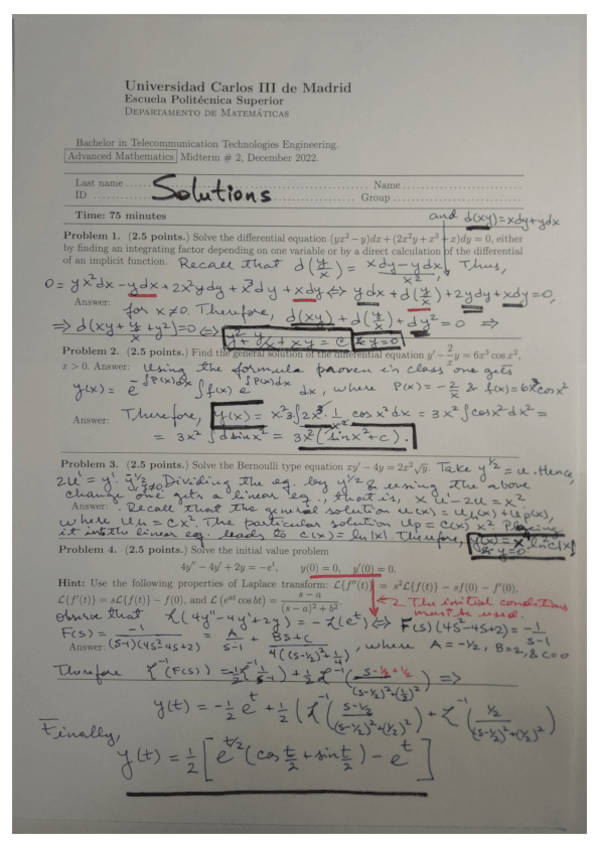 Universidad Carlos III de Madrid
Escuela Politécnica Superior
DEPARTAMENTO DE MATEMÁTICAS
Bachelor in Telecommunication Technologies Engineering.
Advanced Mathematics Midterm # 2, December 2022.
Last name ..... Solutions ..... Name .....
ID ..... Group .....
Time: 75 minutes and d(xy)=xdy+ydx
Problem 1. (2.5 points.) Solve the differential equation (yx² − y)dx + (2x²y + x³ + x)dy = 0, either
by finding an integrating factor depending on one variable or by a direct calculation of the differential
of an implicit function. Recall that d(y/x) = (xdy-ydx)/x². Thus,
0 = yx²dx - ydx + 2x²ydy + x³dy + xdy ⇔ ydx + d(y/x) + 2ydy + xdy = 0,
Answer: for x≠0. Therefore, d(xy) + d(y/x) + dy² = 0 ⇒
⇒ d(xy + y/x + y²) = 0 ⇔ y² + y/x + xy = C & y=0
Problem 2. (2.5 points.) Find the general solution of the differential equation y′ − 2/x y = 6x³ cos x²,
x > 0. Answer: Using the formula proven in class one gets
y(x) = e^(-∫P(x)dx) ∫f(x) e^(∫P(x)dx) dx, where P(x) = -2/x & f(x) = 6x³cosx²
Answer: Therefore, y(x) = x²·3·∫2x³·1/x² cos x²dx = 3x² ∫cosx²dx² =
= 3x² ∫dsinx² = 3x²(sinx²+c).
Problem 3. (2.5 points.) Solve the Bernoulli type equation xy′ − 4y = 2x²√y. Take y^½ = u. Hence,
2u' = y'·y^-½, y≠0. Dividing the eq. by y^½ & using the above
change one gets a linear eq., that is, xu' - 2u = x²
Answer: Recall that the general solution u(x) = u_h(x) + u_p(x),
where u_h = Cx². The particular solution u_p = C(x)x². Plugging
it into the linear eq. leads to C(x) = ln|x|. Therefore, y(x) = x⁴ ln²C|x|
& y=0.
Problem 4. (2.5 points.) Solve the initial value problem
4y″ − 4y′ + 2y = −eᵗ, y(0) = 0, y′(0) = 0.
Hint: Use the following properties of Laplace transform: L{f″(t)} = s²L{f(t)} − sf(0) − f′(0),
L{f′(t)} = sL{f(t)} − f(0), and L{eᵃᵗ cos bt} = (s − a)/((s − a)² + b²).
The initial conditions
must be used.
Observe that L(4y''-4y'+2y) = -L(eᵗ) ⇔ F(s)(4s²-4s+2) = -1/(s-1)
F(s) = -1/((s-1)(4s²-4s+2)) = A/(s-1) + (Bs+C)/(4((s-½)²+¼)), where A=-½, B=2, & C=0
Answer:
Therefore L⁻¹(F(s)) = -½L⁻¹(1/(s-1)) + ½L⁻¹((s-½+½)/((s-½)²+(½)²)) ⇒
y(t) = -½eᵗ + ½(L⁻¹((s-½)/((s-½)²+(½)²)) + L⁻¹(½/((s-½)²+(½)²))
Finally,
y(t) = ½[e^(t/2)(cos t/2 + sin t/2) - eᵗ]